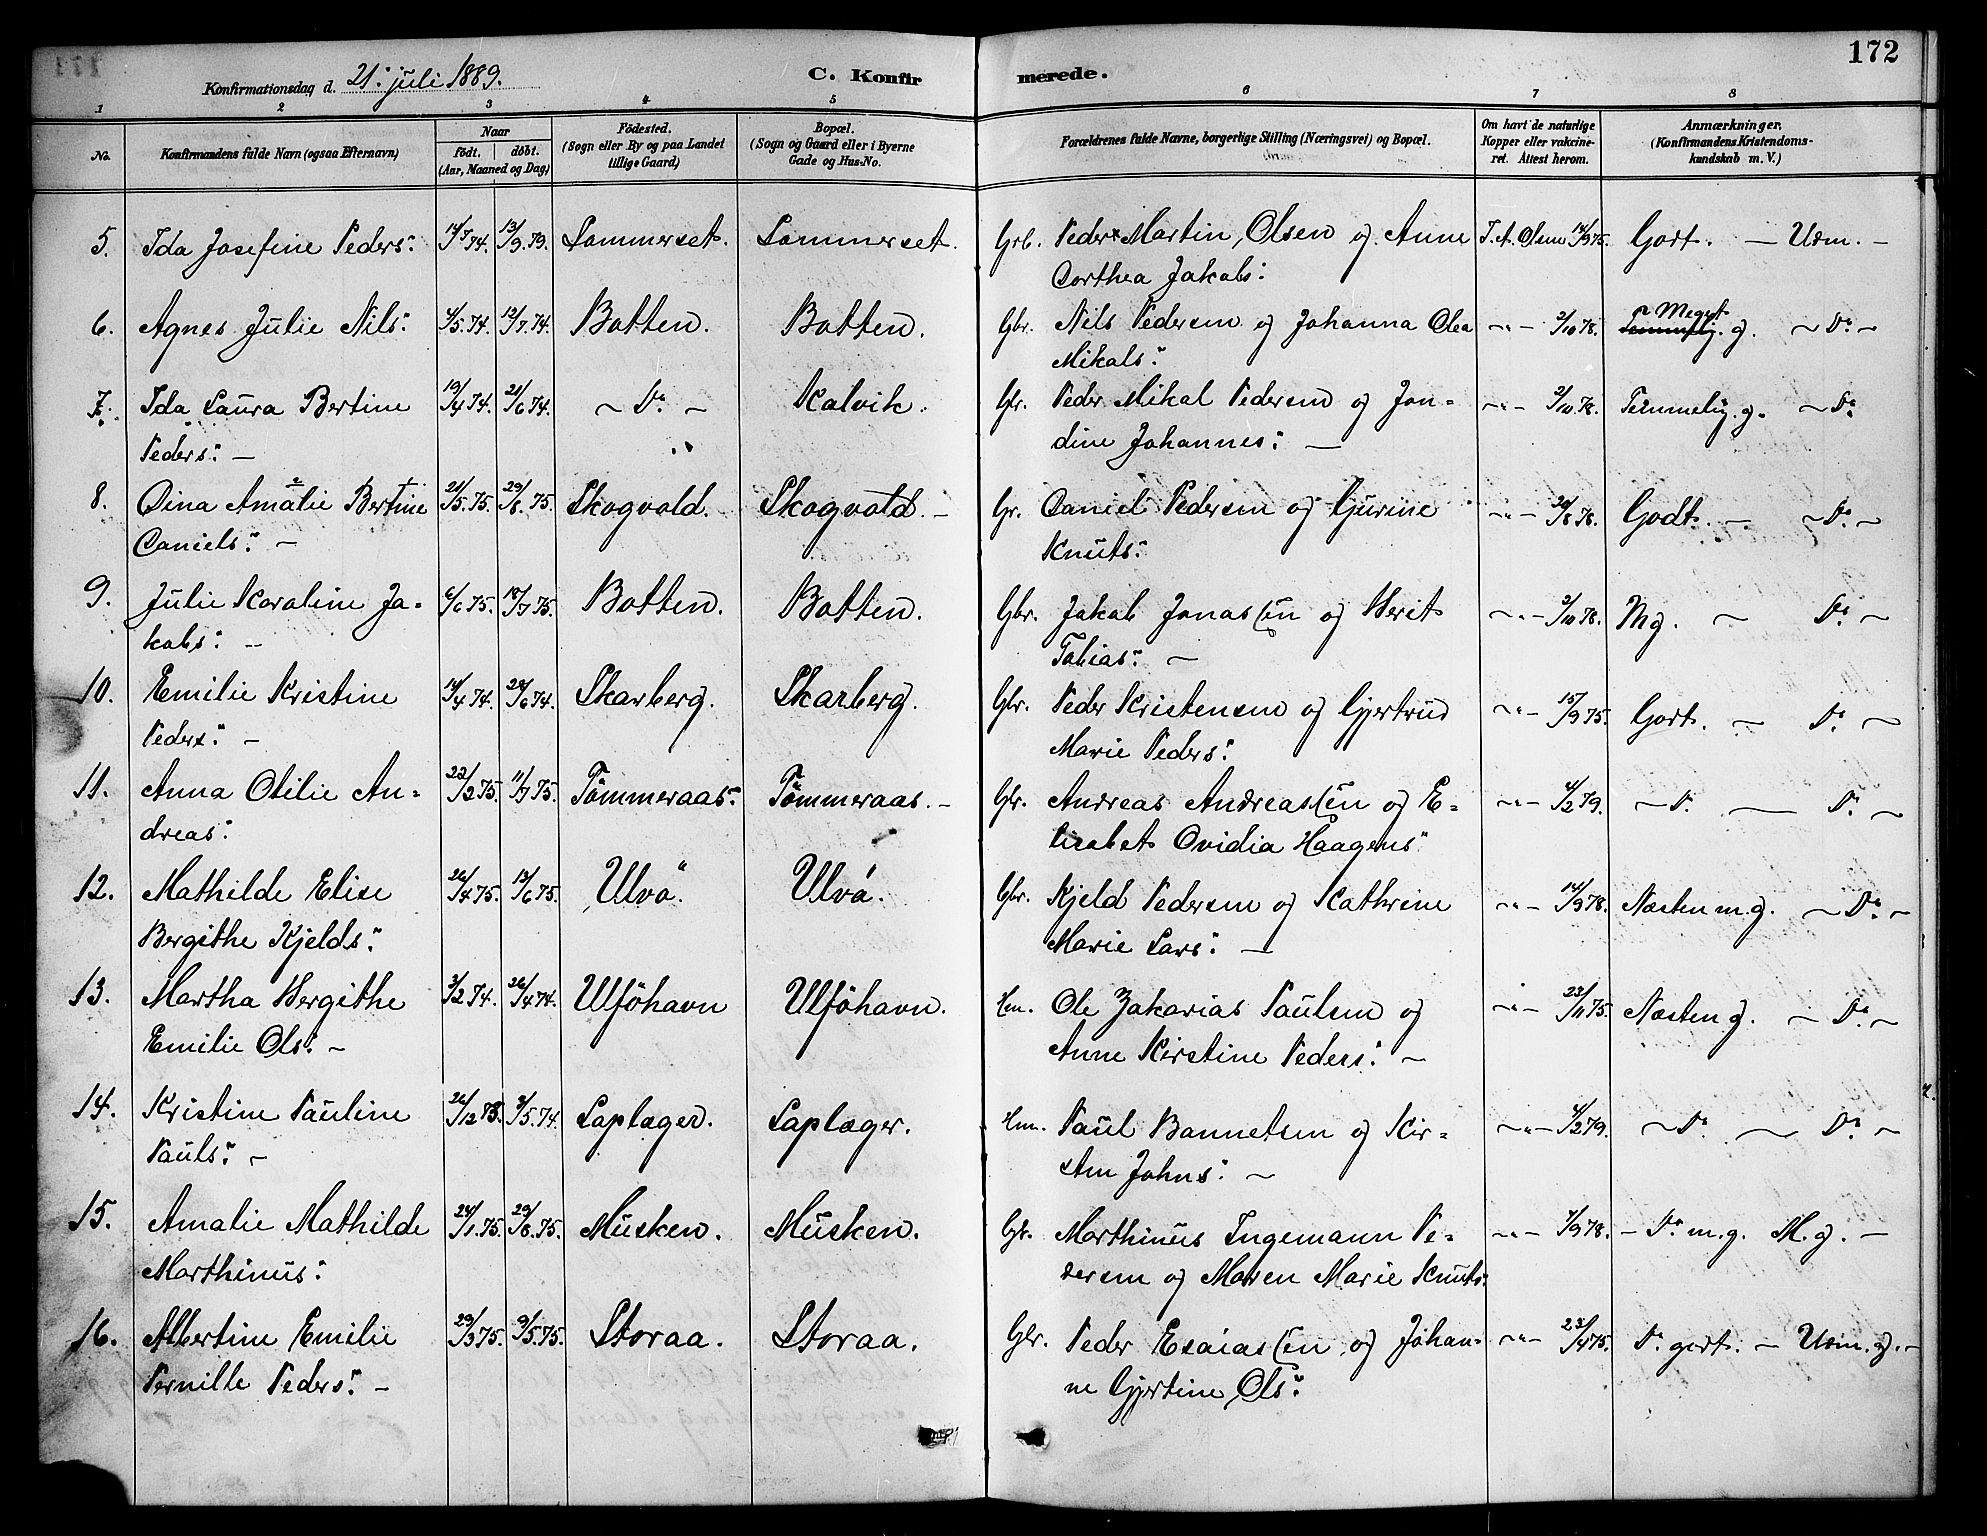 172
Konfirmationsdag d. 21: juli 1889. C. Konfirmerede.
1 2 3 4 5 6 7 8
No. Konfirmandens fulde Navn (ogsaa Efternavn) Naar Födt. döbt. (Aar, Maaned og Dag) Födested. (Sogn eller By og paa Landet tillige Gaard) Bopæl. (Sogn og Gaard eller i Byerne Gade og Hus-No. Forældrenes fulde Navne, borgerlige Stilling (Næringsvei) og Bopæl. Om havt de naturlige Kopper eller vakcineret. Attest herom. Anmærkninger. (Konfirmandens Kristendomskundskab m. V.)
5. Ida Josefine Peders: 14/7 74. 13/9. 79. Sommerset. Sommerset. Grb. Peder Martin Olsen og Anne J. A. Olsen 14/9 75. Godt. — Udm. —
Dorthea Jakobs:
6. Agnes Julie Nils: 4/5. 74. 12/7. 74. Botten. Botten. Gbr. Nils Pedersen og Johanna Olea —"— 2/10 78. Meget g. — Do —
Mikals:
7. Ida Laura Bertine 19/4 74. 21/6 74. — Do — Kalvik. Gbr. Peder Mikal Pedersen og Jon- —"— 2/10 78. Temmelig. g. — Do
Peders: — dine Johannes: —
8. Dina Amalie Bertine 21/5. 75. 29/8. 75. Skogvold. Skogvold. — Gr. Daniel Pedersen og Gjurine —"— 20/8 78. Godt. — — Do —
Daniels: — Knuts:
9. Julie Karoline Ja- 6/6 75. 18/7 75. Botten. Botten. Gbr. Jakob Jonassen og Berit —"— 2/10 78. Mg. — Do —
kobs: — Tobias: —
10. Emilie Kristine 14/4 74. 24/6 74. Skarberg. Skarberg. Gbr. Peder Kristensen og Gjertrud —"— 15/9 75. Godt. — Do —
Peders: — Marie Peders:
11. Anna Otilie An- 22/2 75. 11/7 75. Tömmeraas: Tömmeraas. — Gbr. Andreas Andreassen og E- —"— 4/2 79. — Do — Do —
dreas: lisabet Ovidia Haagens:
12. Mathilde Elise 26/4 75. 13/6 75. Ulvö. Ulvö. Gbr. Kjeld Pedersen og Kathrine —"— 14/9 78. Næsten m. g. — Do —
Bergithe Kjelds: Marie Lars: —
13. Martha Bergithe 3/2 74. 26/4 74. Ulföhavn Ulföhavn. Hm. Ole Zakarias Paulsen og —"— 23/11 75. Næsten g. — Do —
Emilie Ols: — Anne Kirstine Peders: —
14. Kristine Pauline 26/12 73. 3/5. 74. Laplæger. Laplæger. Hm. Paul Bannetsen og Kir- —"— 4/2 79. — Do — Do —
Pauls: — sten Johns: —
15. Amalie Mathilde 24/1. 75. 29/8. 75. Musken. Musken. Gbr. Marthinus Ingemann Pe- —"— 7/9 78. — Do m. g. M. g. —
Marthinus: dersen og Maren Marie Knuts:
16. Albertine Emilie 29/3 75. 9/5. 75. Storaa. Storaa. Gbr. Peder Esaiassen og Johan- —"— 23/4 75. Do godt. — Udm. g. —
Pernille Peders: — ne Gjertine Ols: